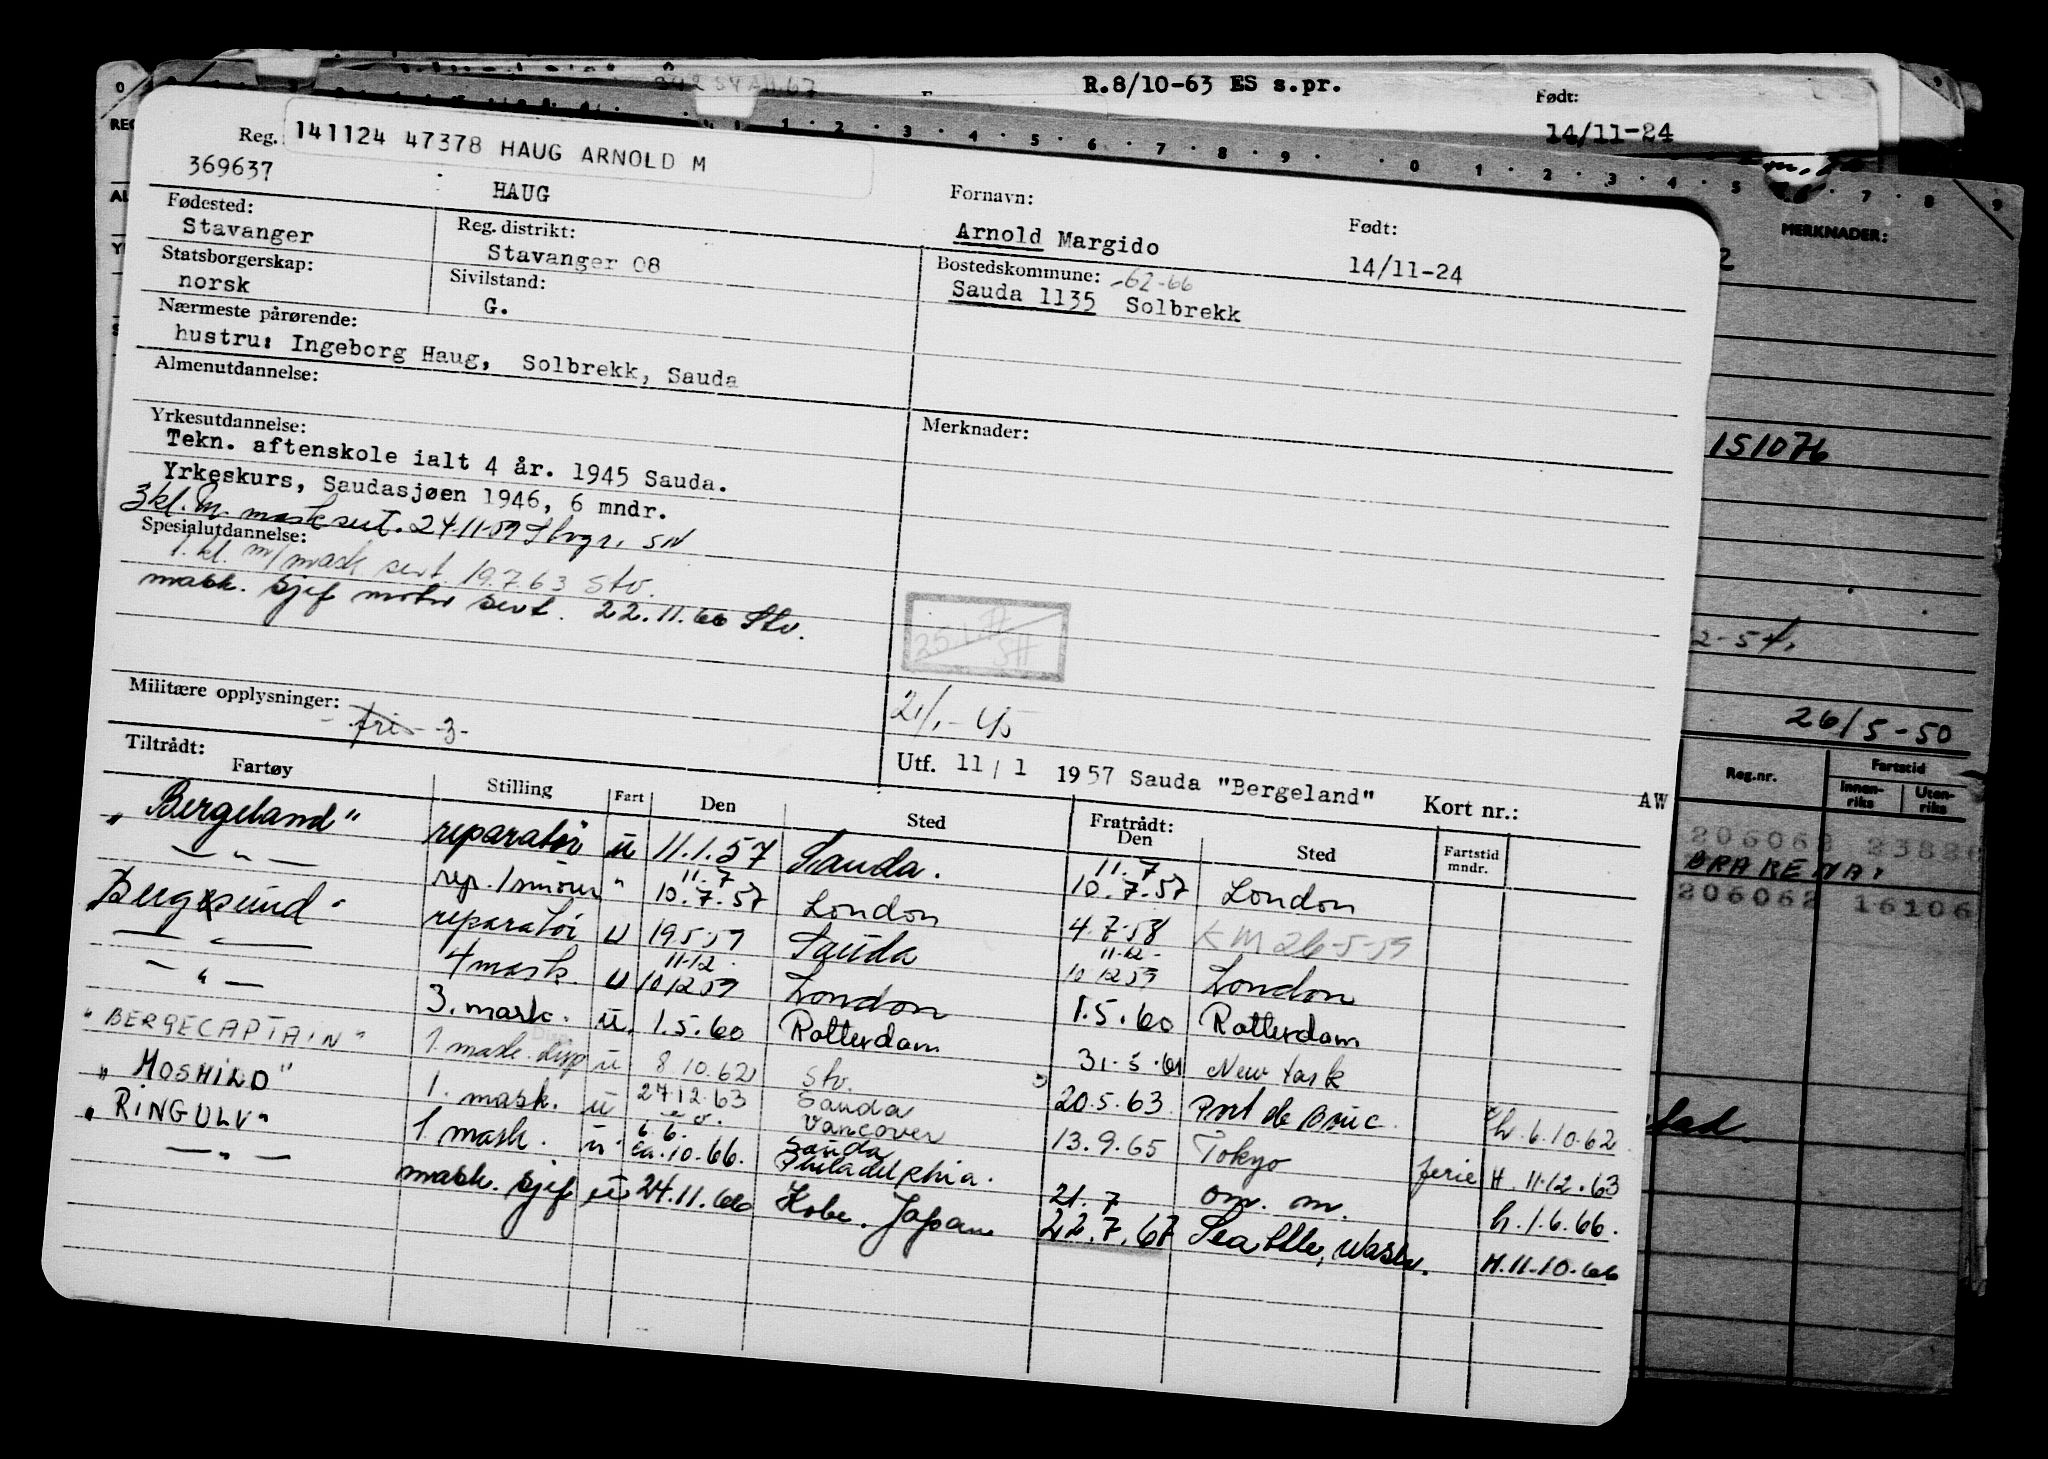 R.8/10-63 ES s.pr.
Født:
14/11-24
Reg.
141124 47378 HAUG ARNOLD M
369637
HAUG
Fornavn:
Arnold Margido
Født:
14/11-24
Fødested:
Stavanger
Reg. distrikt:
Stavanger 08
Bostedskommune: -62-66
Sauda 1135 Solbrekk
Statsborgerskap:
norsk
Sivilstand:
G.
Nærmeste pårørende:
hustru: Ingeborg Haug, Solbrekk, Sauda
Almenutdannelse:
Yrkesutdannelse:
Tekn. aftenskole ialt 4 år. 1945 Sauda.
Yrkeskurs, Saudasjøen 1946, 6 mndr.
3 kl. m. mask sert. 24-11-59 Stvgr. SN
Spesialutdannelse:
1. kl. m/ mask sert 19.7.63 Stv.
mask. sjef motor sert. 22.11.66 Stv.
Merknader:
Militære opplysninger:
- fri - 3 -
Utf. 11/1 1957 Sauda "Bergeland" Kort nr.: AW
Tiltrådt:
Fartøy Stilling Fart Den Sted Fratrådt: Den Sted Fartstid mndr.
"Bergeland" reparatør u 11.1.57 Sauda. 11.7 10.7.57 London
— " — rep./smører " 11.7 10.7.57 London 4.7.58 KM 26-5-59
Bergesund" reparatør u 19.5.59 Sauda 11.12 10.12.59 London
4 mask. u 11.12. 10.12.59 London 1.5.60 Rotterdam
— " — 3. mask. u. 1.5.60 Rotterdam 31.5.61 New York
"BERGECAPTAIN" 1. mask. disp u 8.10.62 Stv. 20.5.63 Port de Bouc. h. 6.10.62
"HOSHIRD" 1. mask. u 27.12.63 Sauda Vancover 13.9.65 Tokyo ferie H. 11.12.63
"RINGULV" 1. mask. u ca. 10.66. Sauda Philadelphia. 21.7 om. m. h. 1.6.66.
— " — mask. sjef u 24.11.66 Kobe. Japan 22.7.67 Seattle, Wash. H. 11.10.66
MERKNADER:
151076
26/5-50
Reg.nr. Fartstid
Innen-riks Uten-riks
206062
BRAKENA.
206062 16106